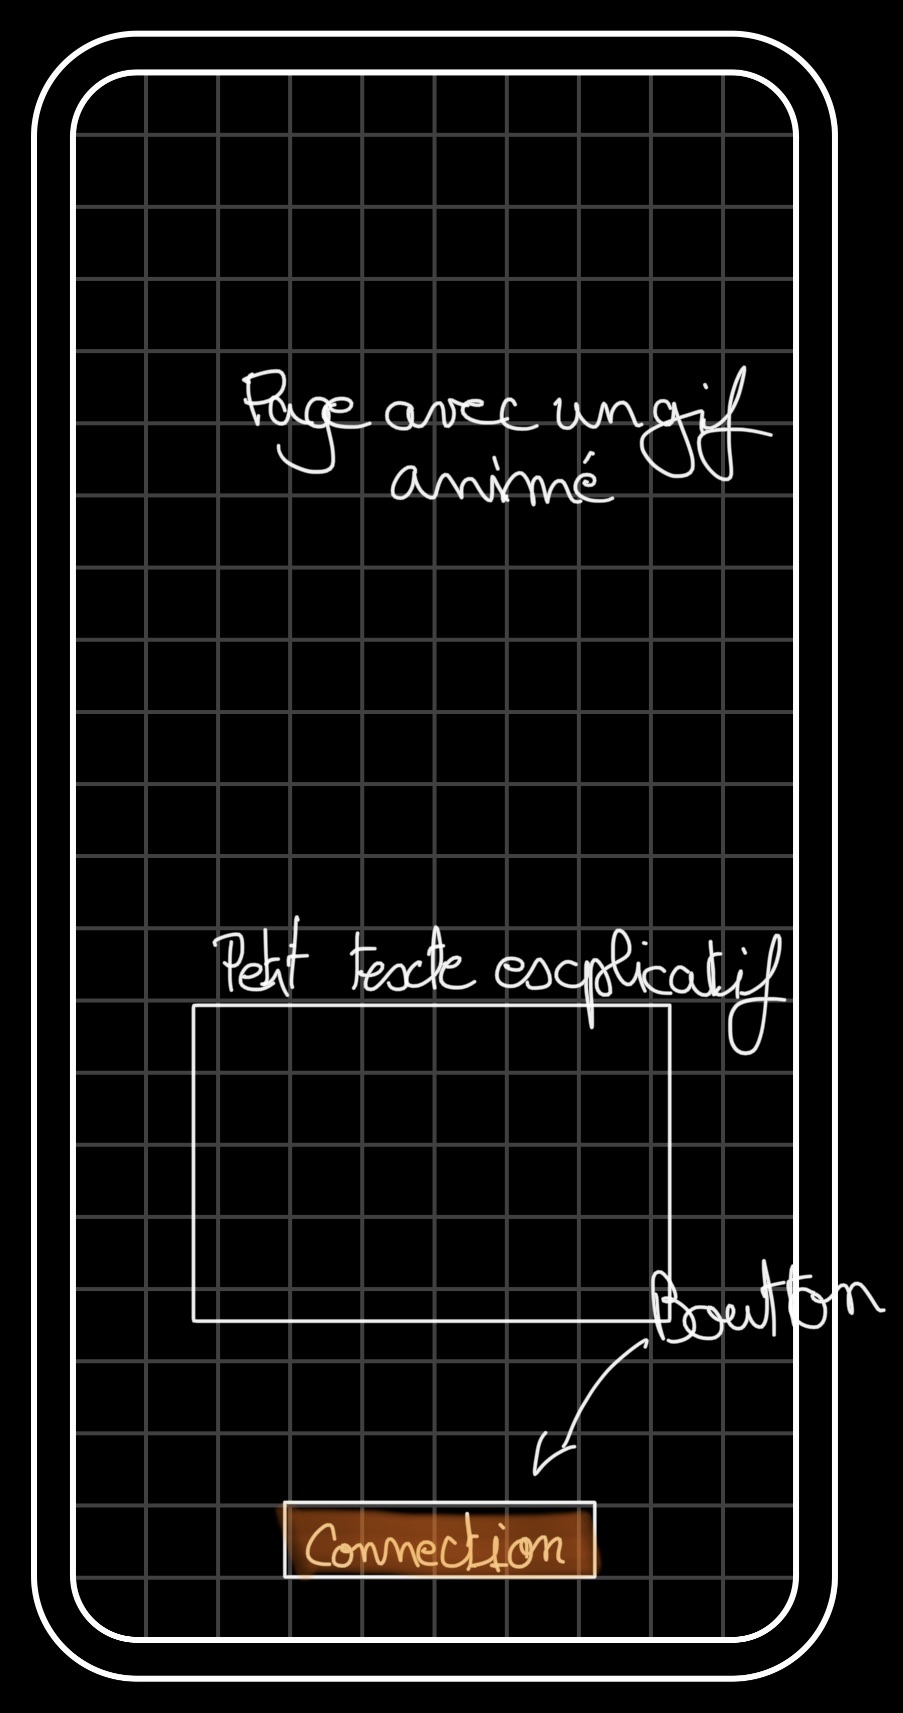 Page avec un gif
animé
Petit texte explicatif
Boutton
Connection